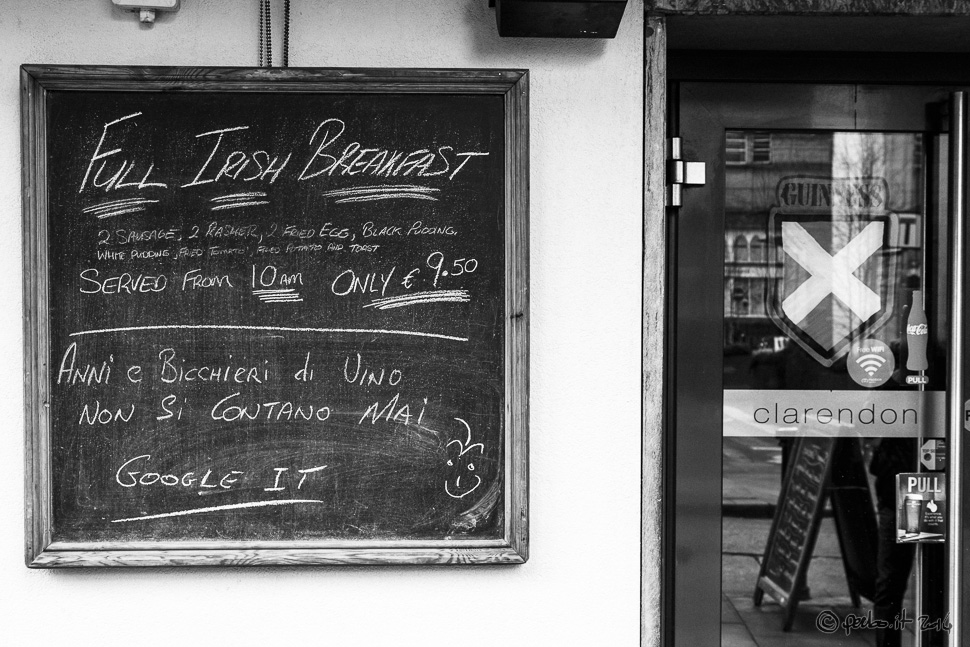 FULL IRISH BREAKFAST
2 SAUSAGE, 2 RASHER, 2 FRIED EGG, BLACK PUDDING,
WHITE PUDDING, FRIED TOMATO, FRIED POTATO AND TOAST
SERVED FROM 10AM ONLY € 9.50
ANNI e BICCHIERI di VINO
NON Si CONTANO MAi
GOOGLE IT
GUINNESS
Free WiFi
Coca-Cola
PULL
clarendon
PULL